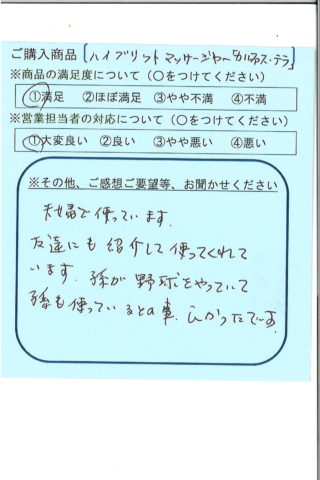 ご購入商品〔ハイブリットマッサージャー「カルネス・テラ〕
※商品の満足度について（○をつけてください）
①満足 ②ほぼ満足 ③やや不満 ④不満
※営業担当者の対応について（○をつけてください）
①大変良い ②良い ③やや悪い ④悪い
※その他、ご感想ご要望等、お聞かせください
夫婦で使っています.
友達にも紹介して使ってくれて
います. 孫が野球をやっていて
孫も使っているとの事. よかったです.